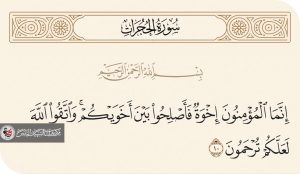 سُورَةُ الحُجُرَاتِ
بِسْمِ اللَّهِ الرَّحْمَٰنِ الرَّحِيمِ
إِنَّمَا الْمُؤْمِنُونَ إِخْوَةٌ فَأَصْلِحُوا بَيْنَ أَخَوَيْكُمْ ۚ وَاتَّقُوا اللَّهَ
لَعَلَّكُمْ تُرْحَمُونَ ١٠